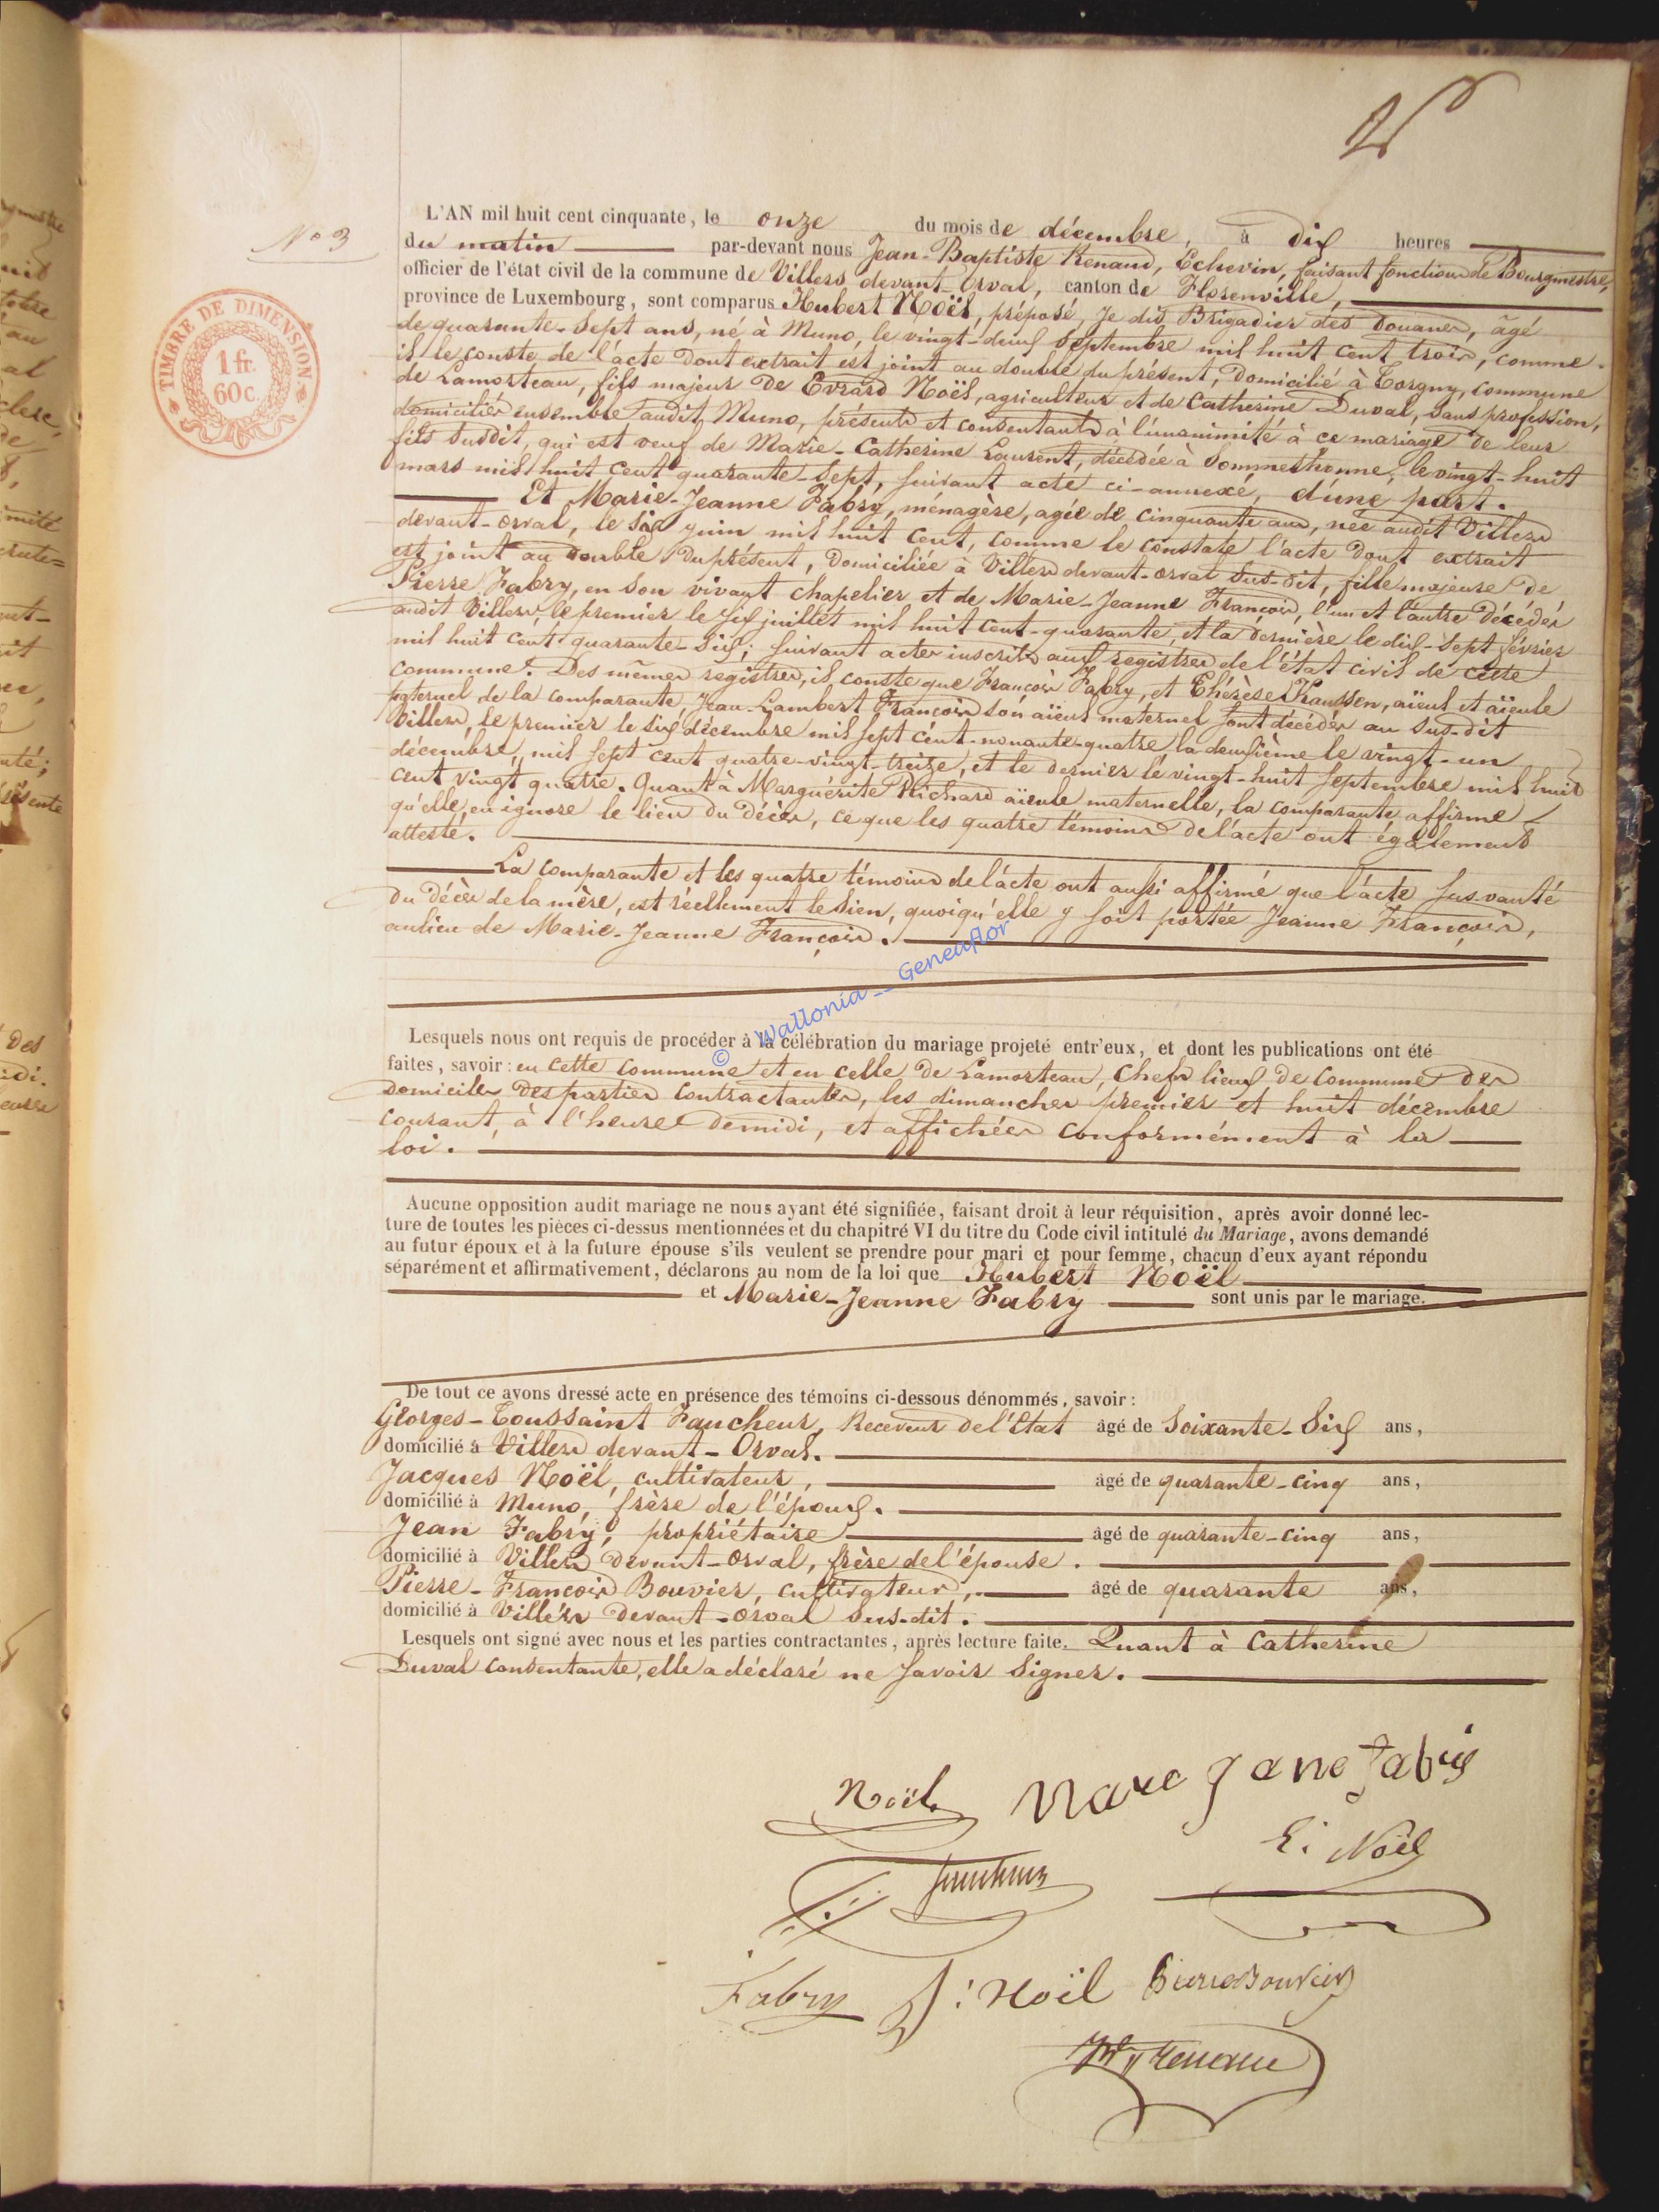 N° 3
TIMBRE DE DIMENSION
1 fr.
60 c.
L'AN mil huit cent cinquante, le onze du mois de décembre, à dix heures
du matin par-devant nous Jean-Baptiste Renaud, Echevin, faisant fonction de Bourgmestre,
officier de l'état civil de la commune de Villers devant-Orval, canton de Florenville,
province de Luxembourg, sont comparus Hubert Noël, préposé, je dis Brigadier des Douanes, âgé
de quarante-sept ans, né à Muno, le vingt-deux septembre mil huit cent trois, comme
il le conste de l'acte dont extrait est joint au double du présent, domicilié à Torgny, commune
de Lamorteau, fils majeur de Evrard Noël, agriculteur et de Catherine Duval, sans profession,
domiciliés ensemble audit Muno, présents et consentants à l'unanimité à ce mariage de leur
fils susdit, qui est veuf de Marie-Catherine Laurent, décédée à Sommethonne, le vingt-huit
mars mil huit cent quarante-sept, suivant acte ci-annexé, d'une part.
Et Marie-Jeanne Fabry, ménagère, agée de cinquante ans, née audit Villers
devant-Orval, le six juin mil huit cent, comme le constate l'acte dont extrait
est joint au double du présent, domiciliée à Villers devant-Orval sus-dit, fille majeure de
Pierre Fabry, en son vivant chapelier et de Marie-Jeanne François, l'un et l'autre décédés
audit Villers, le premier le six juillet mil huit cent-quarante, et la dernière le dix-sept février
mil huit cent quarante-six; suivant actes inscrits aux registres de l'état civil de cette
commune. Des mêmes registres, il conste que François Fabry, et Thérèse Chaussen, aïeul et aïeule
paternel de la comparante, Jean-Lambert François son aïeul maternel sont décédés au sus-dit
Villers, le premier le six décembre mil sept cent-nonante-quatre la deuxième le vingt-un
décembre, mil sept cent quatre-vingt-treize, et le dernier le vingt-huit septembre mil huit
cent vingt quatre. Quant à Marguérite Richard aïeule maternelle, la comparante affirme
qu'elle en ignore le lieu du décès, ce que les quatre témoins de l'acte ont également
attesté.
La comparante et les quatre témoins de l'acte ont aussi affirmé que l'acte sus-vanté
du décès de la mère, est réellement le sien, quoiqu'elle y soit portée Jeanne François,
au lieu de Marie-Jeanne François.
© Wallonia__Geneaflor
Lesquels nous ont requis de procéder à la célébration du mariage projeté entr'eux, et dont les publications ont été
faites, savoir: en cette commune et en celle de Lamorteau, chefs lieux de commune des
domiciles des parties contractantes, les dimanches premier et huit décembre
courant, à l'heure de midi, et affichées conformément à la
loi.
Aucune opposition audit mariage ne nous ayant été signifiée, faisant droit à leur réquisition, après avoir donné lec-
ture de toutes les pièces ci-dessus mentionnées et du chapitré VI du titre du Code civil intitulé du Mariage, avons demandé
au futur époux et à la future épouse s'ils veulent se prendre pour mari et pour femme, chacun d'eux ayant répondu
séparément et affirmativement, déclarons au nom de la loi que Hubert Noël
et Marie-Jeanne Fabry sont unis par le mariage.
De tout ce avons dressé acte en présence des témoins ci-dessous dénommés, savoir:
Georges-Toussaint Faucheur, Receveur de l'Etat âgé de soixante-six ans,
domicilié à Villers devant-Orval.
Jacques Noël, cultivateur, âgé de quarante-cinq ans,
domicilié à Muno, frère de l'époux.
Jean Fabry, propriétaire âgé de quarante-cinq ans,
domicilié à Villers devant-Orval, frère de l'épouse.
Pierre-François Bouvier, cultivateur, âgé de quarante ans,
domicilié à Villers devant-Orval sus-dit.
Lesquels ont signé avec nous et les parties contractantes, après lecture faite. Quant à Catherine
Duval consentante, elle a déclaré ne savoir signer.
Noël
E: Noël
Faucheur
Fabry J: Noël